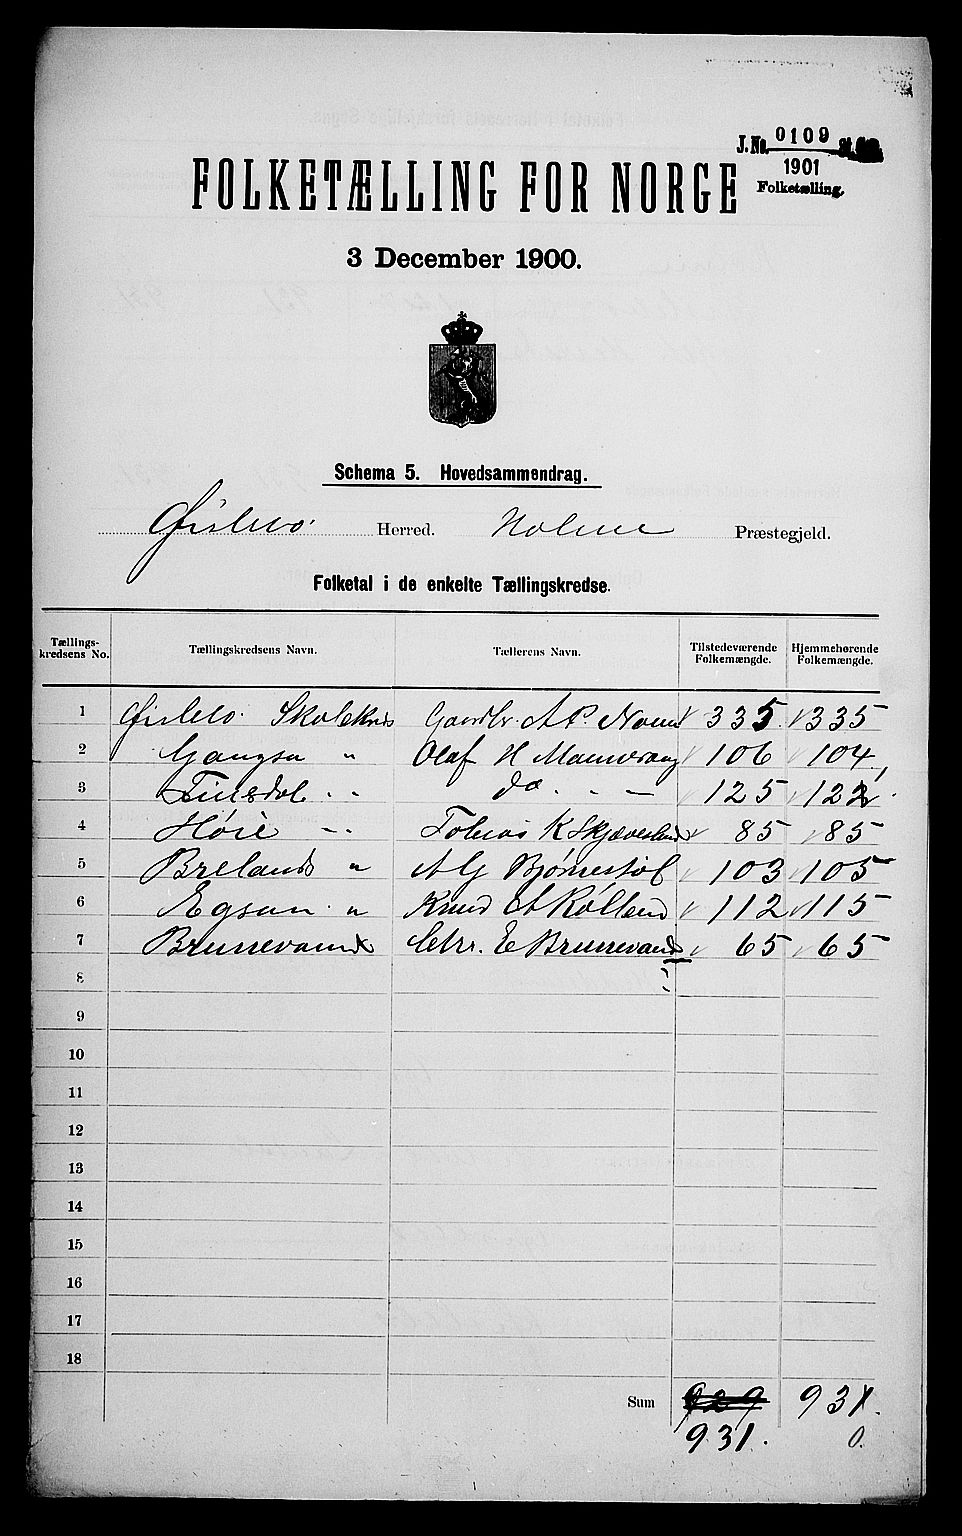 J.No. 0109
1901
Folketælling.
FOLKETÆLLING FOR NORGE
3 December 1900.
Schema 5. Hovedsammendrag.
Øislebø Herred. Holme Præstegjeld.
Folketal i de enkelte Tællingskredse.
Tællings-kredsens No. Tællingskredsens Navn. Tællerens Navn. Tilstedeværende Folkemængde. Hjemmehørende Folkemængde.
1 Øislebø Skolekreds Gaardbr. A P. 335 335
2 Gangsa " Olaf H 106 104
3 Finsdal " do. " — 125 122
4 Høie " Tobias K Skjævesland 85 85
5 Breland " A G Bjørnestøl 103 105
6 Egsaa " Knud A Rølland 112 115
7 Brunevand Chr. E Brunevand 65 65
8
9
10
11
12
13
14
15
16
17
18
Sum 929 931.
931. 0.